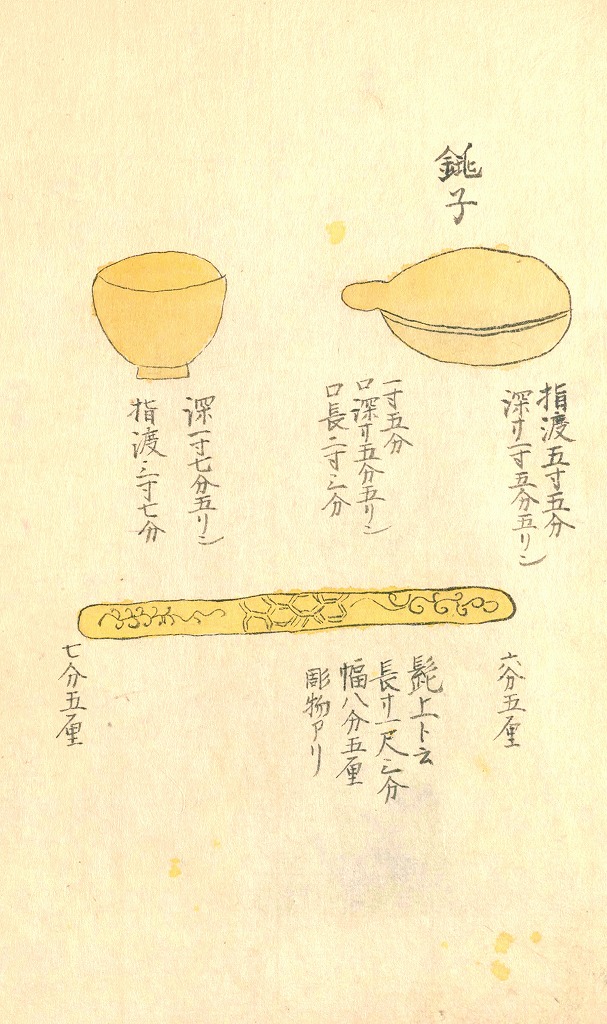 銚子
指渡五寸五分
深サ一寸五分五リン
一寸五分
口深サ五分五リン
口長二寸三分
深一寸七分五リン
指渡三寸七分
六分五厘
髭上ト云
長サ一尺三分
幅八分五厘
彫物アリ
七分五厘